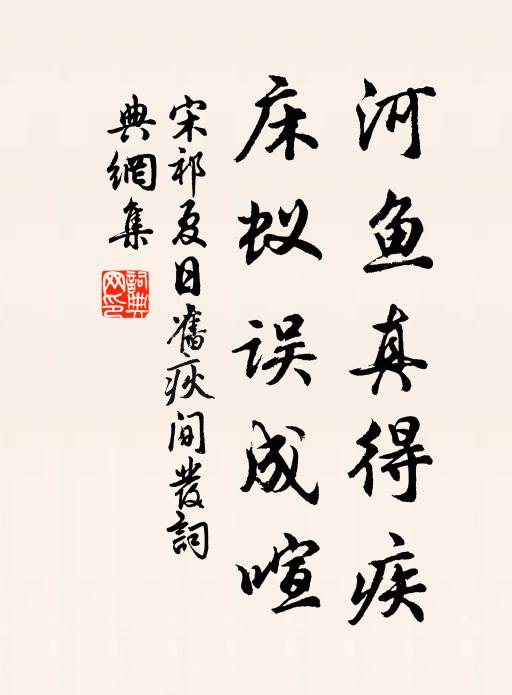 河鱼真得疾
床蚁误成喧
宋祁夏日舊疢间發詞
典網集
詞典
网印